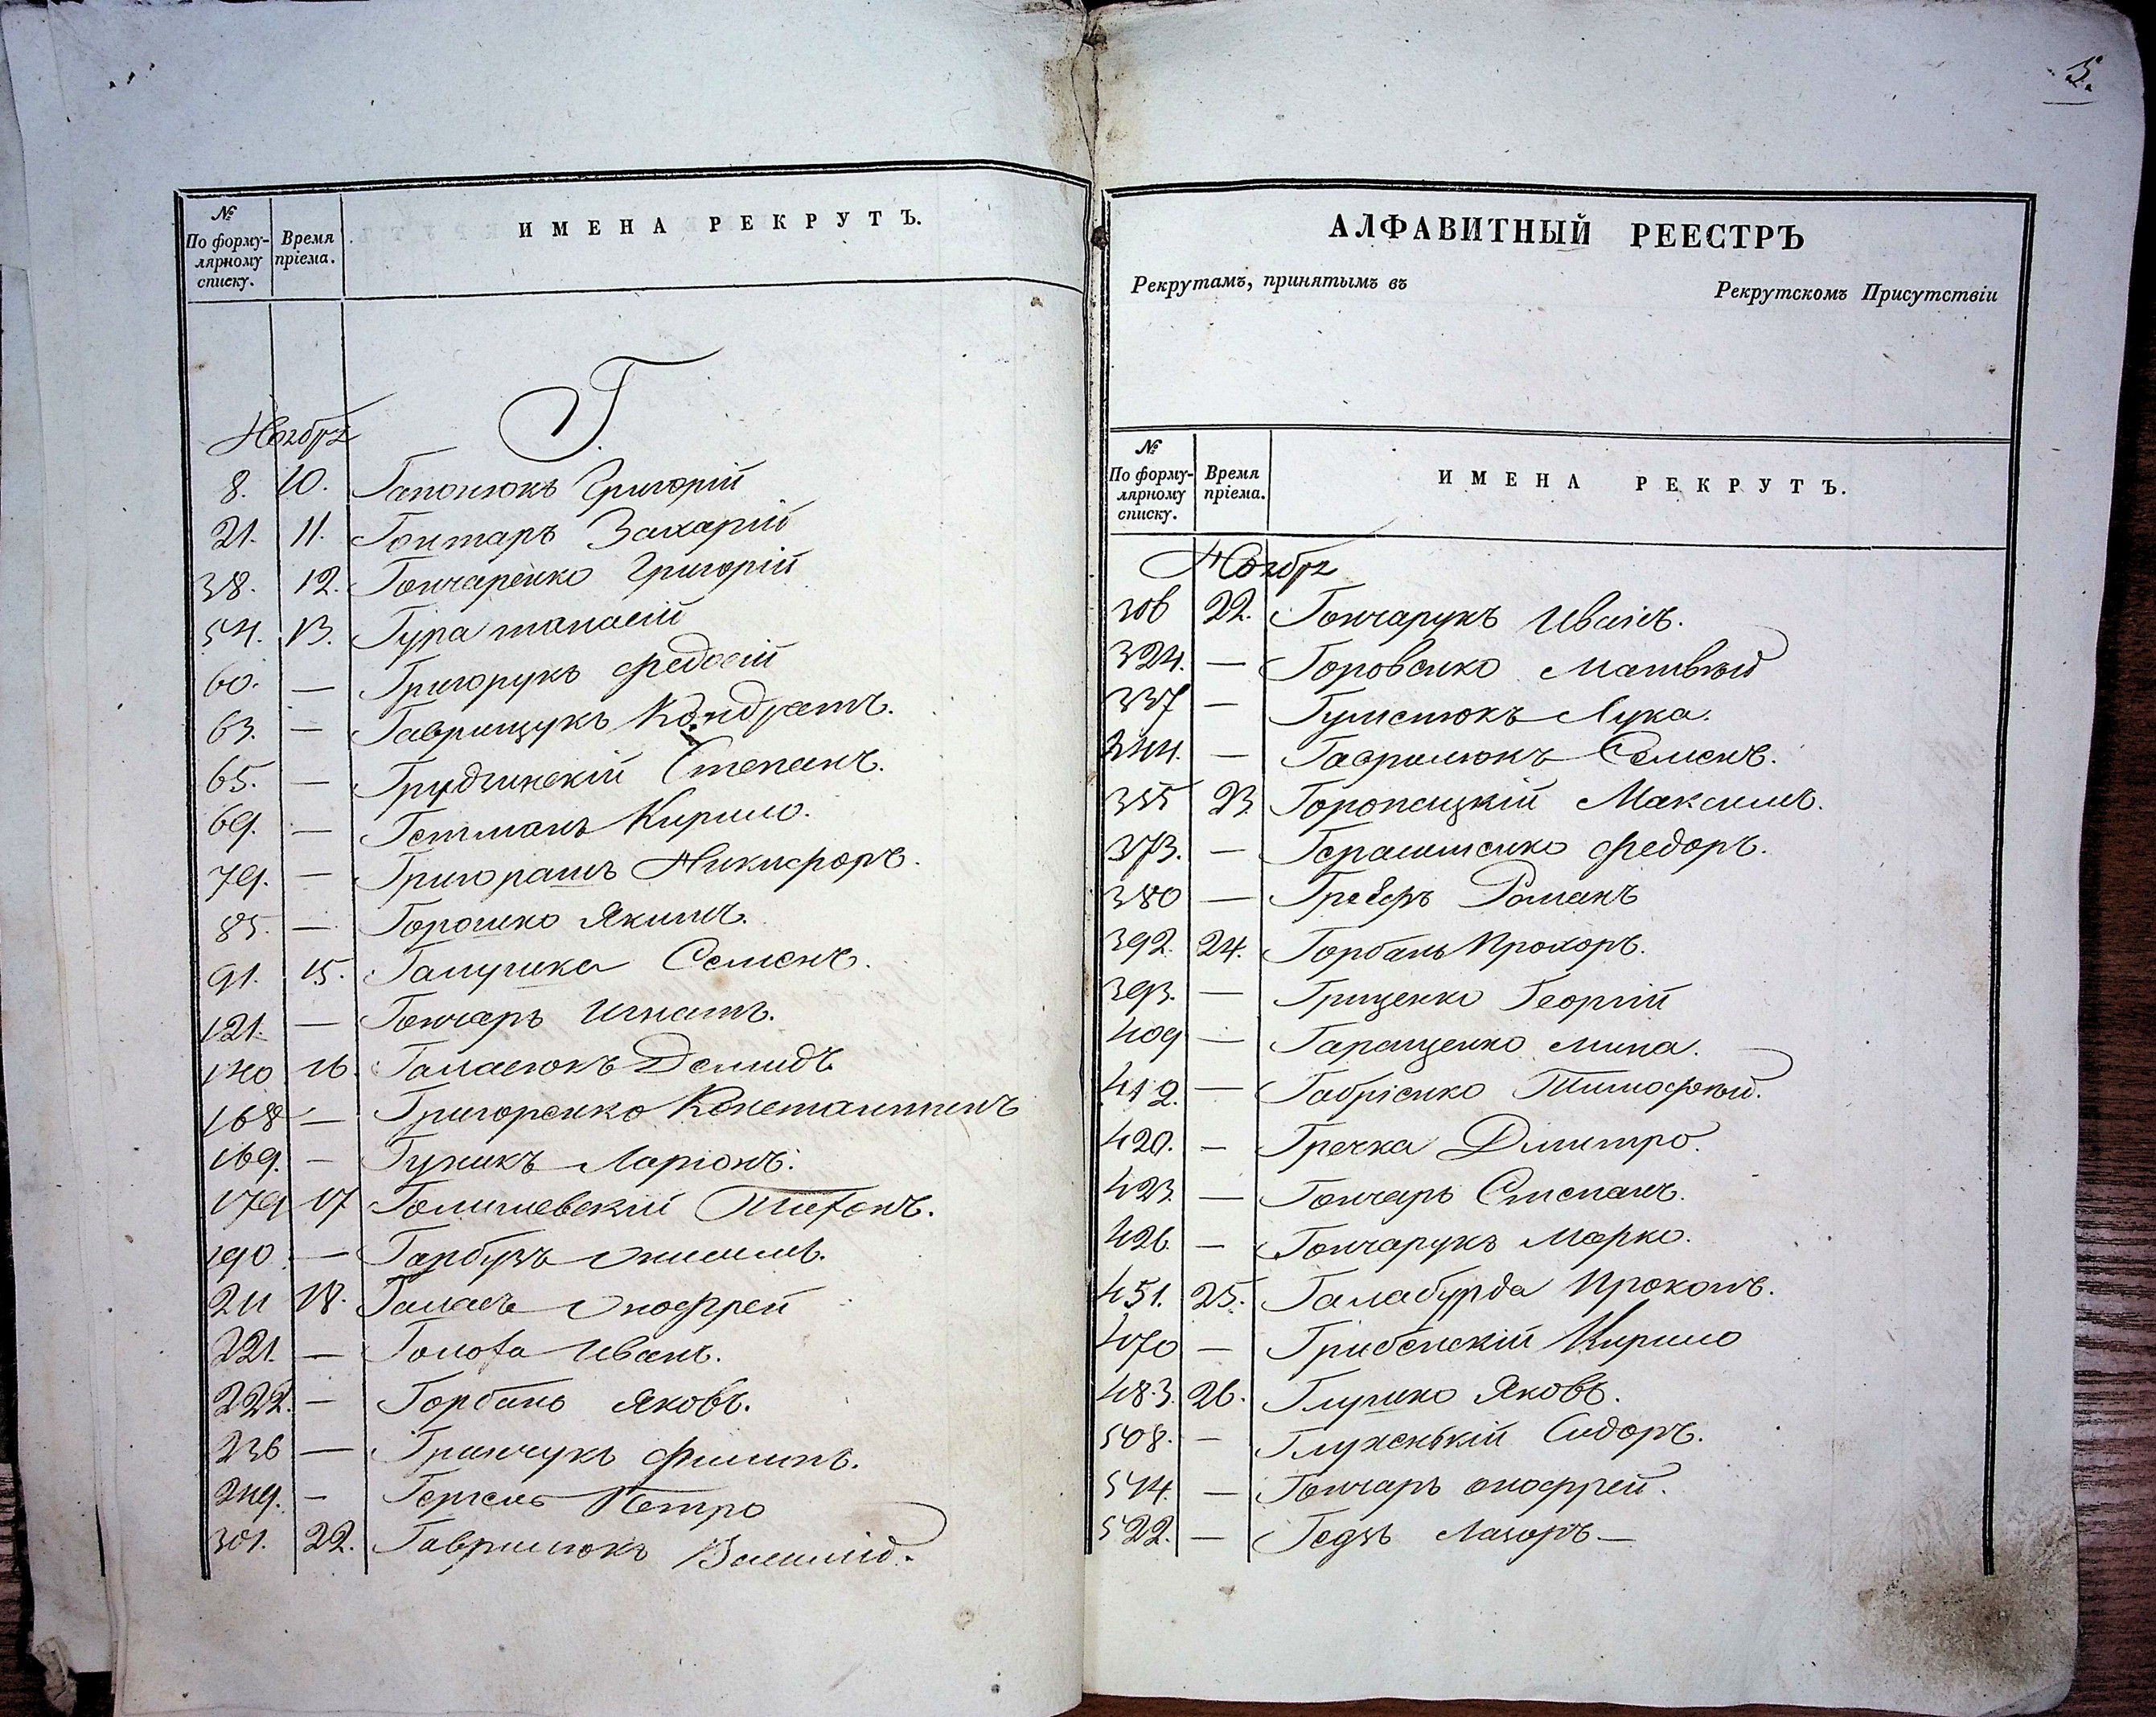 № По формулярному списку.
Время пріема.
ИМЕНА РЕКРУТЪ.
Г.
Ноября
8. 10. Гапонюкъ Григорій
21. 11. Гонтарь Захарій
38. 12. Гончаренко Григорій
54. 13. Гура танасій
60. — Григорукъ федосій
63. — Гаврищукъ Кондратъ.
65. — Грудзинскій Степанъ.
69. — Гетманъ Кирило.
79. — Григорашъ Никифоръ.
85. — Горошко Якимъ.
91. 15. Галушка Семенъ.
121. — Гончаръ Игнатъ.
140. 16. Галасюкъ Демидъ
168 — Григоренко Константинъ
169. — Гужикъ Ларіонъ.
179 17 Голишевскій
190. — Гарбузъ
211 18. Галасъ Онофрей
221. — Голота Иванъ.
222. — Горбань Яковъ.
236 — Гринчукъ филипъ.
249. — Гергель Петро
301. 22. Гаврилюкъ Василій.
5.
АЛФАВИТНЫЙ РЕЕСТРЪ
Рекрутамъ, принятымъ въ Рекрутскомъ Присутствіи
№ По формулярному списку.
Время пріема.
ИМЕНА РЕКРУТЪ.
Ноября
306 22. Гончарукъ Иванъ.
324. — Горовенко Матвѣй
337 — Гуменюкъ Лука.
344. — Гаврилюкъ Семенъ.
355 23 Горопацкій Максимъ.
373. — Герасименко федоръ.
380 — Романъ
392. 24. Горбань Прохоръ.
393. — Грищенко Георгій
409 — Гаращенко мина.
412. — Габріенко Тимофѣй.
420. — Гречка Дмитро.
423. — Гончаръ Степанъ.
426. — Гончарукъ Марко.
451. 25. Галабурда Прокопъ.
470 — Грибенскій Кирило
483. 26. Глушко Яковъ.
508. — Глуженькій Сидоръ.
514. — Гончаръ онофрей.
522. — Гедзь Лазоръ —